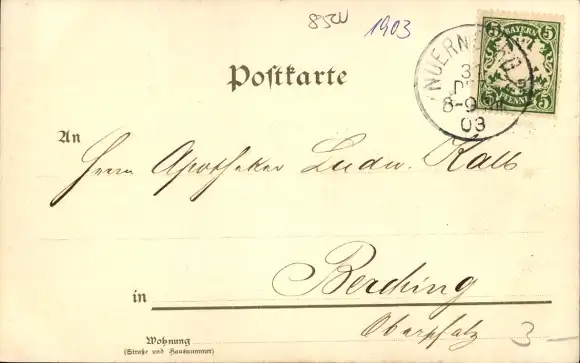 1903
BAYERN
5 5
5 PFENNIG 5
NUERNBERG
8-9
03
Postkarte
An
Herrn Apotheker Ludw. Kalb
in Berching
Oberpfalz
Wohnung
(Straße und Hausnummer)
3-